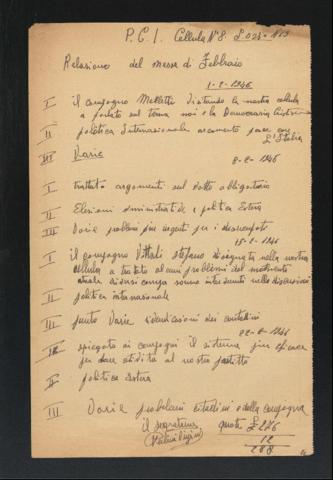 P.C.I. Cellula N° 8
Relazione del mese di Febbraio
1-2-1946
I il compagno Melletti visitando la nostra cellula
a parlato sul tema noi e la Democrazia Cristiana
II politica Internazionale argomento pace con
L'Italia
III Varie
8-2-1946
I trattato argomenti sul voto obligatorio
II Elezioni amministrative e politica Estera
III Varie problemi piu urgenti per i disoccupati
15-2-1946
I il compagno Vittali Stefano nella nostra
cellula a trattato alcuni problemi del momento
sono intervenuti nella discussione
II politica internazionale
III punto Varie dei contadini
22-2-1946
I spiegato ai compagni il sistema piu efficace
per dare al nostro partito
II politica estera
III Varie problemi cittadini e della campagna
il segretario quote £ 276
12
288